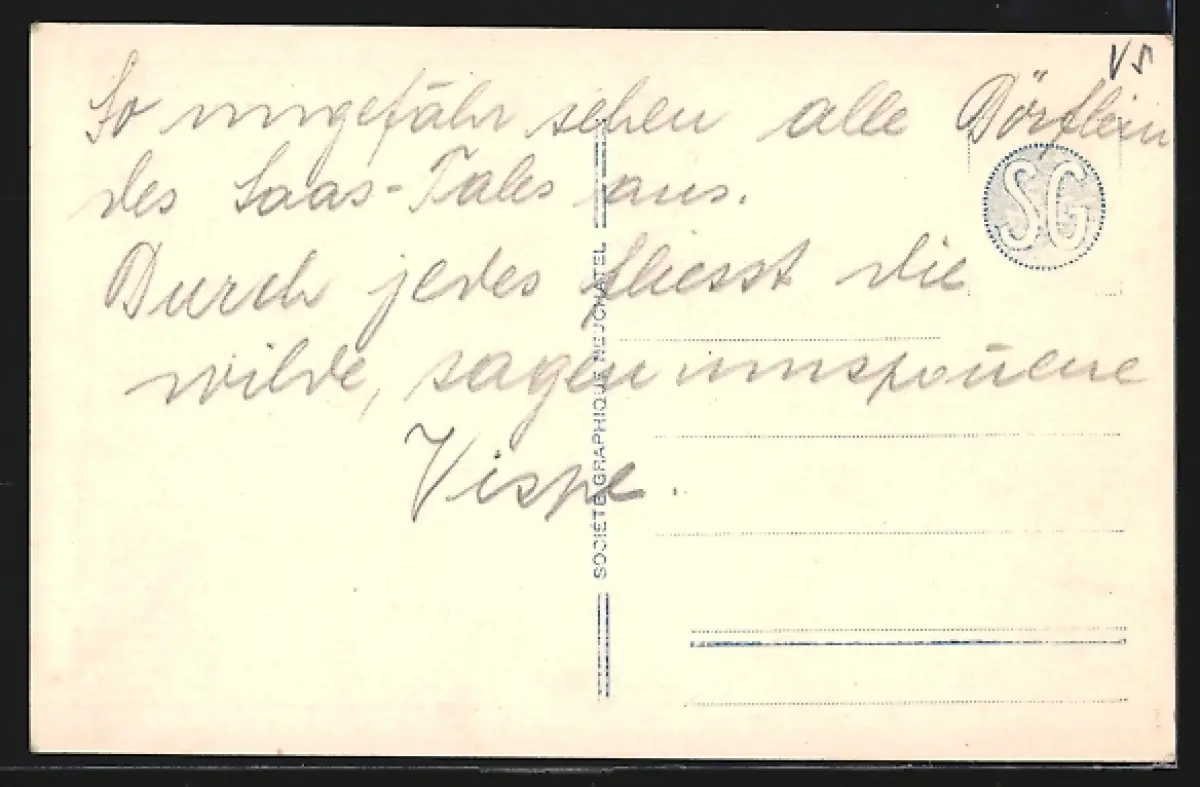 VS
So ungefähr sehen alle Dörflein
des Saas-Tales aus.
SG
Durch jedes fliesst die
wilde, sagenumsponnene
Vispe.
SOCIÉTÉ GRAPHIQUE NEUCHATEL